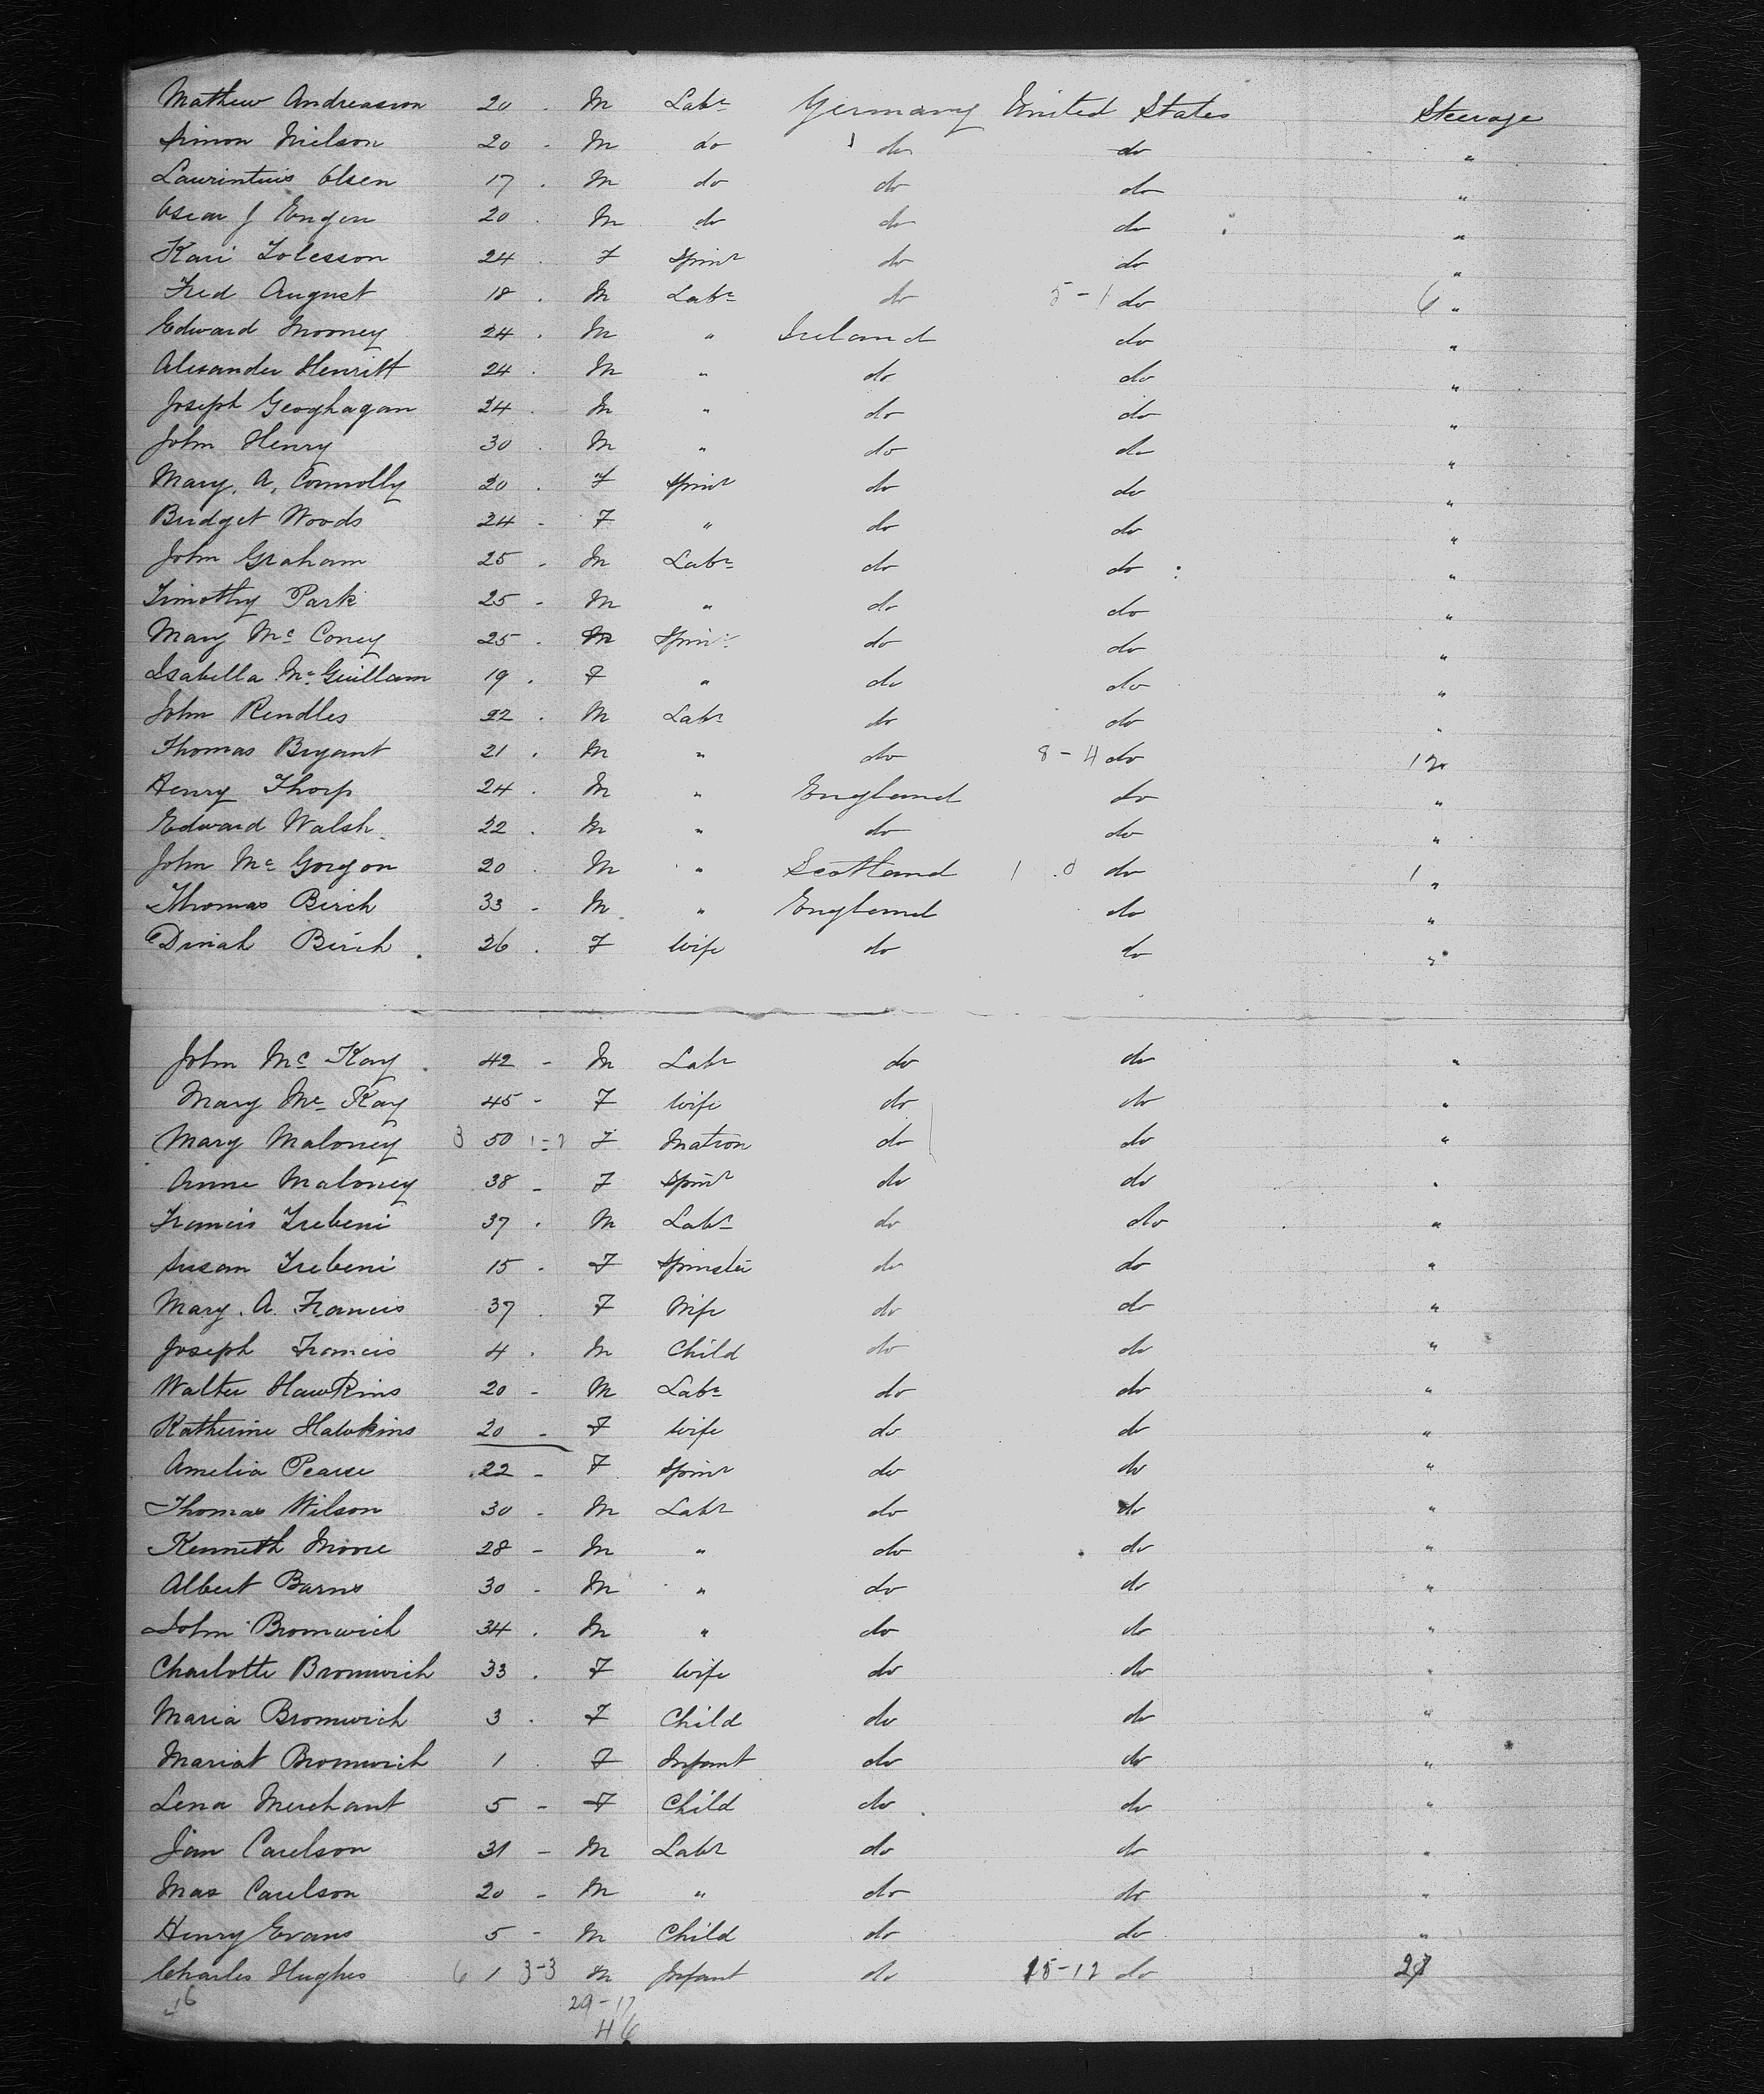 Mathew Andreason 20 . M Labr Germany United States Steerage
Simon Nielson 20 - M do do do "
Laurintius Olsen 17 . M do do do "
Oscar J Engen 20 . M do do do "
Kari Tolesson 24 . F Spinr do do "
Fred August 18 . M Labr do 5-1 do 6 "
Edward Mooney 24 . M " Ireland do "
Alexander Henritt 24 . M " do do "
Joseph Geoghagan 24 . M " do do "
John Henry 30 . M " do do "
Mary, A, Connolly 20 . F Spinr do do "
Bridget Woods 24 - F " do do "
John Graham 25 - M Labr do do "
Timothy Park 25 - M " do do "
Mary Mc Coney 25 . M Spinr do do "
Isabella Mc Guillam 19 . F " do do "
John Rendles 22 . M Labr do do "
Thomas Bryant 21 . M " do 8-4 do 12
Henry Thorp 24 . M " England do "
Edward Walsh 22 . M " do do "
John Mc Gorgon 20 . M " Scotland 1 . 0 do 1 "
Thomas Birch 33 - M " England do "
Dinah Birch . 26 . F Wife do do "
John Mc Kay . 42 - M Labr do do "
Mary Mc Kay 45 - F Wife do do "
Mary Maloney 3 50 1-2 F Matron do do "
Anne Maloney 38 - F Spinr do do "
Francis Trebeni 37 . M Labr do do "
Susan Trebeni 15 . F Spinster do do "
Mary . A. Francis 37 . F Wife do do "
Joseph Francis 4 . M Child do do "
Walter Hawkins 20 - M Labr do do "
Katherine Hawkins 20 - F Wife do do "
Amelia Pearse 22 - F Spinr do do "
Thomas Wilson 30 - M Labr do do "
Kenneth Moore 28 - M " do do "
Albert Barns 30 - M " do do "
John Bromwich 34 . M " do do "
Charlotte Bromwich 33 . F Wife do do "
Maria Bromwich 3 . F Child do do "
Mariat Bromwich 1 . F Infant do do "
Lena Merchant 5 - F Child do do "
Jan Carelson 31 - M Labr do do "
Max Carelson 20 - M " do do "
Henry Evans 5 - M Child do do "
Charles Hughes 6 1 3-3 M Infant do 15-12 do 27
46 29-17
46